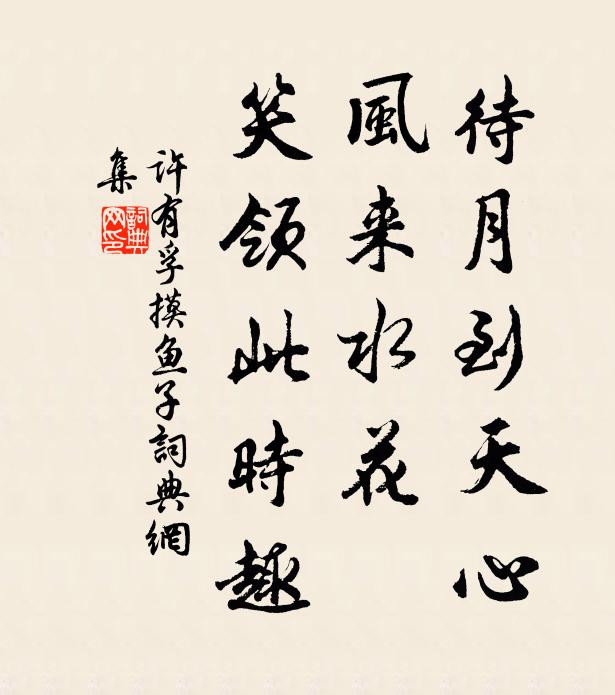 待月到天心
風来水花
笑領此時趣
許有孚摸鱼子詞典網
集
詞典
网印